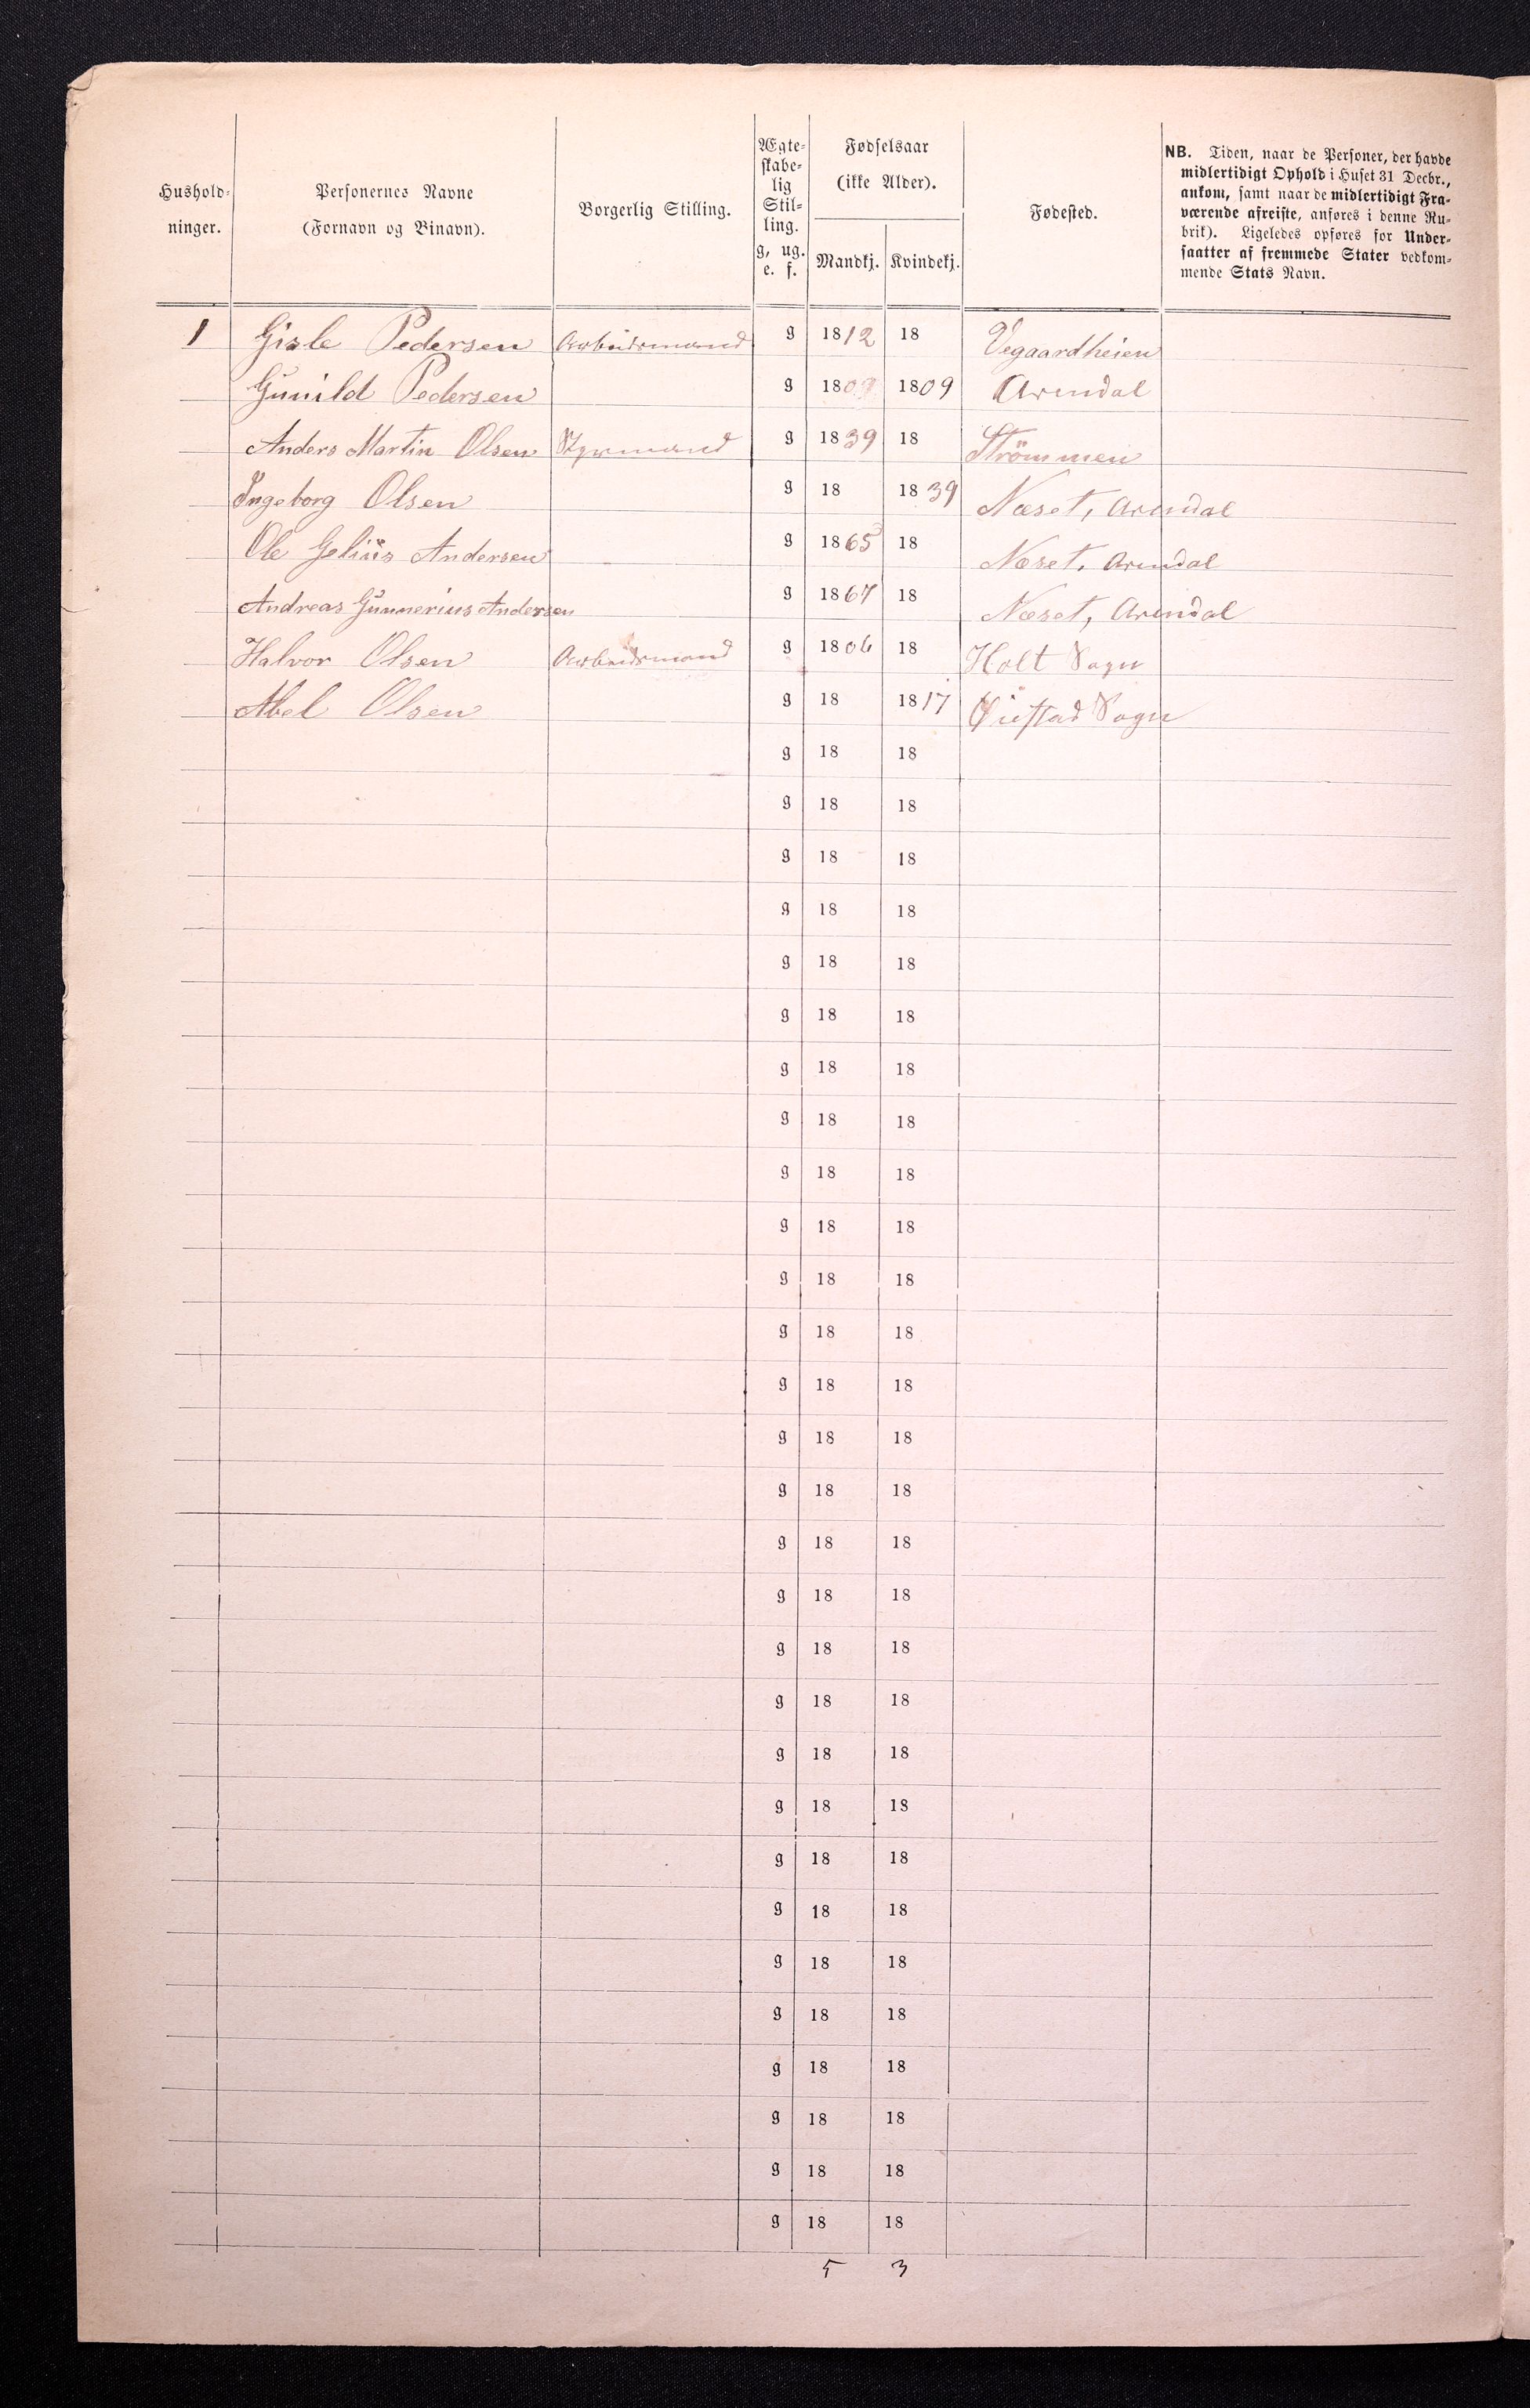 Hushold-
ninger.
Personernes Navne
(Fornavn og Binavn).
Borgerlig Stilling.
Ægte-
skabe-
lig
Stil-
ling.
g, ug.
e. f.
Fødselsaar
(ikke Alder).
Mandkj. Kvindekj.
Fødested.
NB. Tiden, naar de Personer, der havde
midlertidigt Ophold i Huset 31 Decbr.,
ankom, samt naar de midlertidigt Fra-
værende afreiste, anføres i denne Ru-
brik). Ligeledes opføres for Under-
saatter af fremmede Stater vedkom-
mende Stats Navn.
1 Gisle Pedersen Arbeidsmand g 1812 18 Vegaardheien
Gunild Pedersen g 1809 1809 Arendal
Anders Martin Olsen Styrmand g 1839 18 Strömmen
Ingeborg Olsen g 18 1839 Næset, Arendal
Ole Gelius Andersen g 1865 18 Næset, Arendal
Andreas Gunnerius Andersen g 1867 18 Næset, Arendal
Halvor Olsen Arbeidsmand g 1806 18 Holt Sogn
Abel Olsen g 18 1817 Øiestad Sogn
g 18 18
g 18 18
g 18 18
g 18 18
g 18 18
g 18 18
g 18 18
g 18 18
g 18 18
g 18 18
g 18 18
g 18 18
g 18 18
g 18 18
g 18 18
g 18 18
g 18 18
g 18 18
g 18 18
g 18 18
g 18 18
g 18 18
g 18 18
g 18 18
g 18 18
g 18 18
g 18 18
g 18 18
g 18 18
5 3